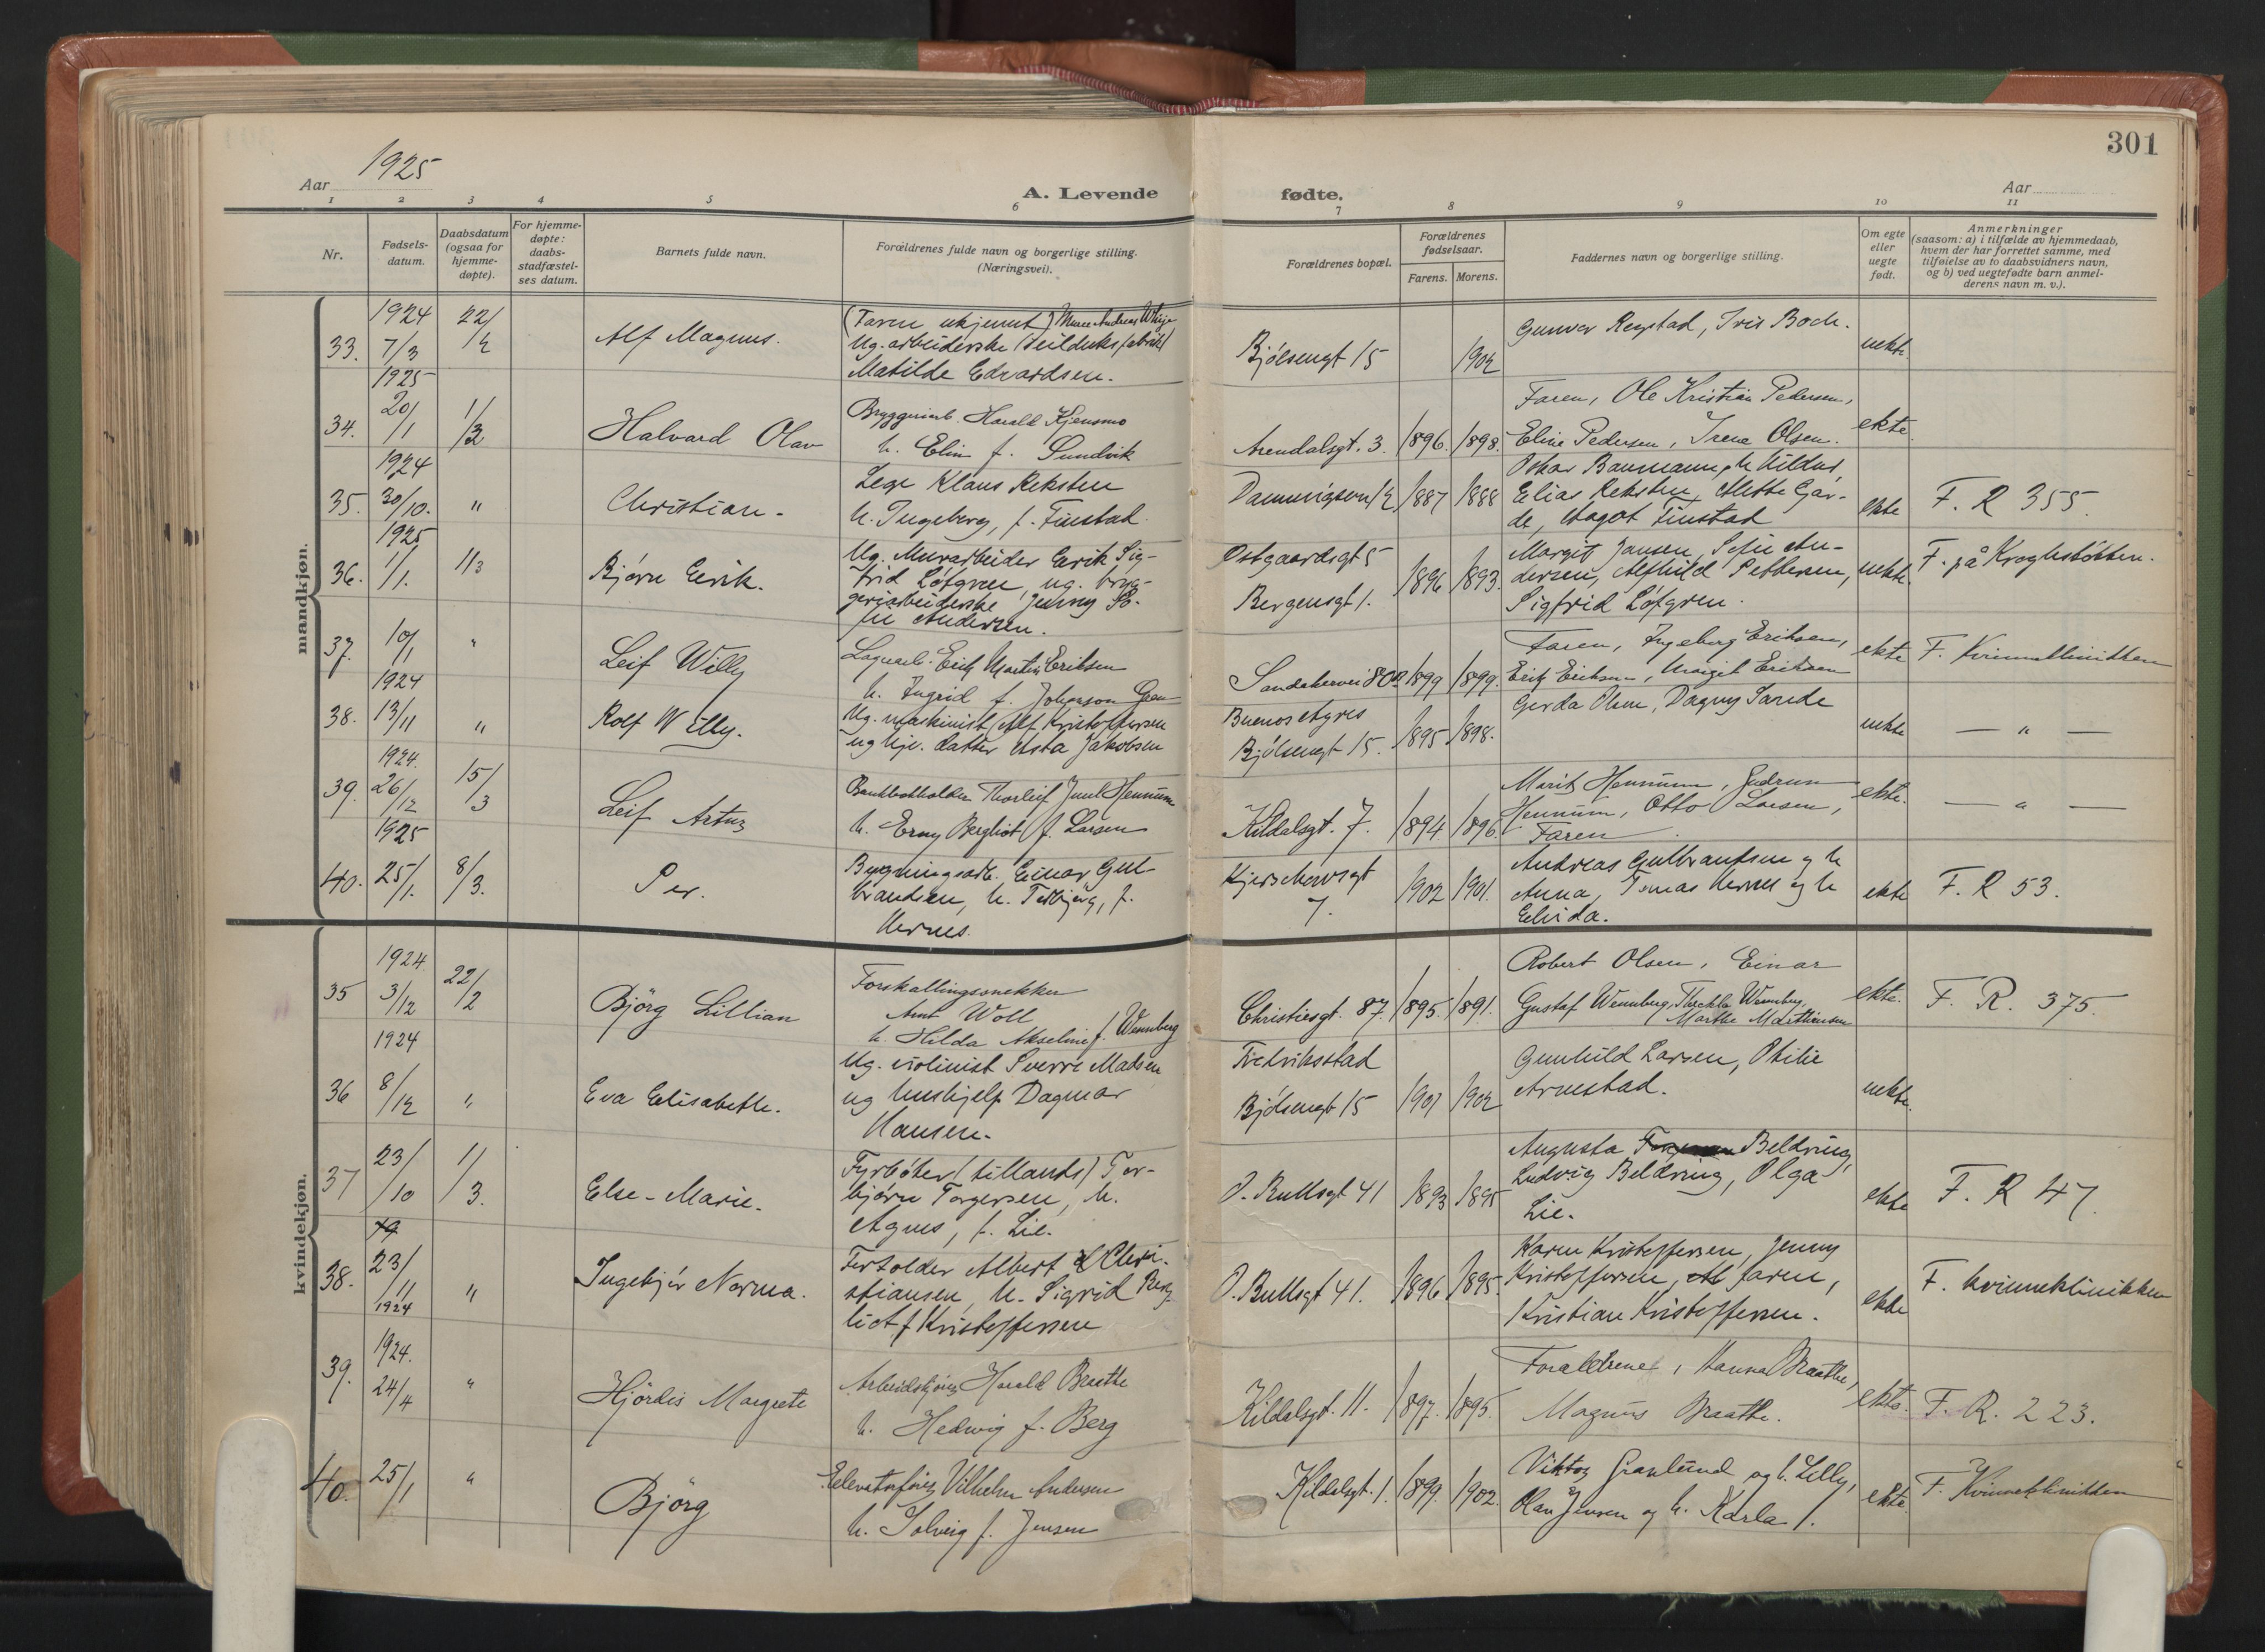 301
Aar 1925
A. Levende fødte.
Aar
1 2 3 4 5 6 7 8 9 10 11
Nr.
Fødsels-
datum.
Daabsdatum
(ogsaa for
hjemme-
døpte).
For hjemme-
døpte:
daabs-
stadfæstel-
ses datum.
Barnets fulde navn.
Forældrenes fulde navn og borgerlige stilling.
(Næringsvei).
Forældrenes bopæl.
Forældrenes
fødselsaar.
Farens. Morens.
Faddernes navn og borgerlige stilling.
Om egte
eller
uegte
født.
Anmerkninger
(saasom: a) i tilfælde av hjemmedaab,
hvem der har forrettet samme, med
tilføielse av to daabsvidners navn,
og b) ved uegtefødte barn anmel-
derens navn m. v.).
mandkjøn.
33.
1924
7/3
22/2
Alf Magnus.
(Faren ukjennt)
Ug. arbeiderske (Seilduksfabrik)
Matilde Edvardsen.
Bjølsengt 15
1902
Gunvor Regstad, Iris Bock.
uekte.
34.
1925
20/1
1/3
Halvard Olav
Bryggeriarb. Harald Kjensmo
h. Elin f. Sundvik
Arendalsgt. 3.
1896. 1898.
Faren, Ole Kristian Pedersen,
Eline Pedersen, Irene Olsen.
ekte
35.
1924
30/10.
"
Christian.
Lege Klaus Reksten
h. Ingeborg, f. Finstad.
1887 1888
Oskar Baumann, h. Hildur
Elias Reksten, Mette Gar-
de, Magot Finstad
ekte
F. R 355.
36.
1925
1/1.
1/3
Bjørn Eerik.
Ug. Murarbeider Eerik Sig-
frid Løfgren, ug. bryg-
geriarbeiderske Jenny So-
fie Andersen.
Østgaardsgt 5
Bergensgt 1.
1896 1893.
Margit Jansen, Sofie An-
dersen, Alfhild Pettersen,
Sigfrid Løfgren.
uekte
F. på Krogstøtten.
37.
10/1
"
Leif Willy
Lagerarb. Erik Martin Eriksen
h. Ingrid f. Johanson Gran
Sandakervei 80
1899 1899.
Faren, Ingeborg Eriksen,
Erik Eriksen, Margit Eriksen
ekte
F. Kvinneklinikken
38.
1924
13/11
"
Rolf Willy.
Ug. maskinist Alf Kristoffersen
ug hje. datter Asta Jakobsen
Buenos Ayres
Bjølsengt 15.
1895 1898.
Gerda Olsen, Dagny Sande
uekte
— " —
39.
1924.
26/12
15/3
Leif Artur
Bankbokholder Thorleif Juul Hennum
h. Erny Bergliot f. Larsen
Kildalsgt. 7.
1894 1896.
Marit Hennum, Gudrun
Hennum, Otto Larsen,
Faren
ekte.
— " —
40.
1925
25/1.
8/3.
Per.
Bygningsarb. Einar Gul-
brandsen, h. Torbjørg, f.
Hernes.
Kjerschowsgt
7.
1902 1901.
Andreas Gulbrandsen og h
Anna, Tomas Hernes og h
Elvida.
ekte
F. R 53.
kvindekjøn.
35
1924.
3/12
22/2
Bjørg Lillian
Forskallingssnekker
Arnt Woll
h. Hilda Akseline f. Wennberg
Christiesgt. 87.
1895. 1891.
Robert Olsen, Einar
Gustaf Wennberg, Theckla Wennberg,
Marthe Mathiensen
ekte.
F. R. 375.
36
1924
8/12
"
Eva Elisabeth.
Ug. violinist Sverre Madsen
ug hushjelp Dagmar
Hansen.
Fredriksstad
Bjølsengt 15
1901 1902
Gunhild Larsen, Otilie
Arnestad.
uekte.
37
23/10
1/3.
Else-Marie.
Fyrbøter (tillands) Tor-
bjørn Torgersen, h.
Agnes, f. Lie.
O. Bullsgt 41
1893 1895
Augusta Beldring,
Ludvig Beldring, Olga
Lie.
ekte
F. R 47
38.
23/11
1924
"
Ingebjør Norma.
Fortolder Albert Chri-
stiansen, h. Sigrid Berg-
liot f Kristoffersen
O. Bullsgt 41.
1896 1895.
Karen Kristoffersen, Jenny
Kristoffersen, faren,
Kristian Kristoffersen.
ekte
F. kvinneklinikken
39.
1924.
24/4
"
Hjørdis Margrete
Arbeidskjører Harald Braathe
h. Hedwig f. Berg
Kildalsgt. 11.
1897. 1895.
Foreldrene, Hanna Braathe,
Magnus Braathe.
ekte.
F. R. 223.
40.
25/1
"
Bjørg
Elevatorfører Vilhelm Andersen
h. Solveig f. Jensen
Kildalsgt. 1.
1899. 1902.
Viktor Granlund og h. Lilly,
Olav Jensen og h. Karla
ekte
F. Kvinneklinikken